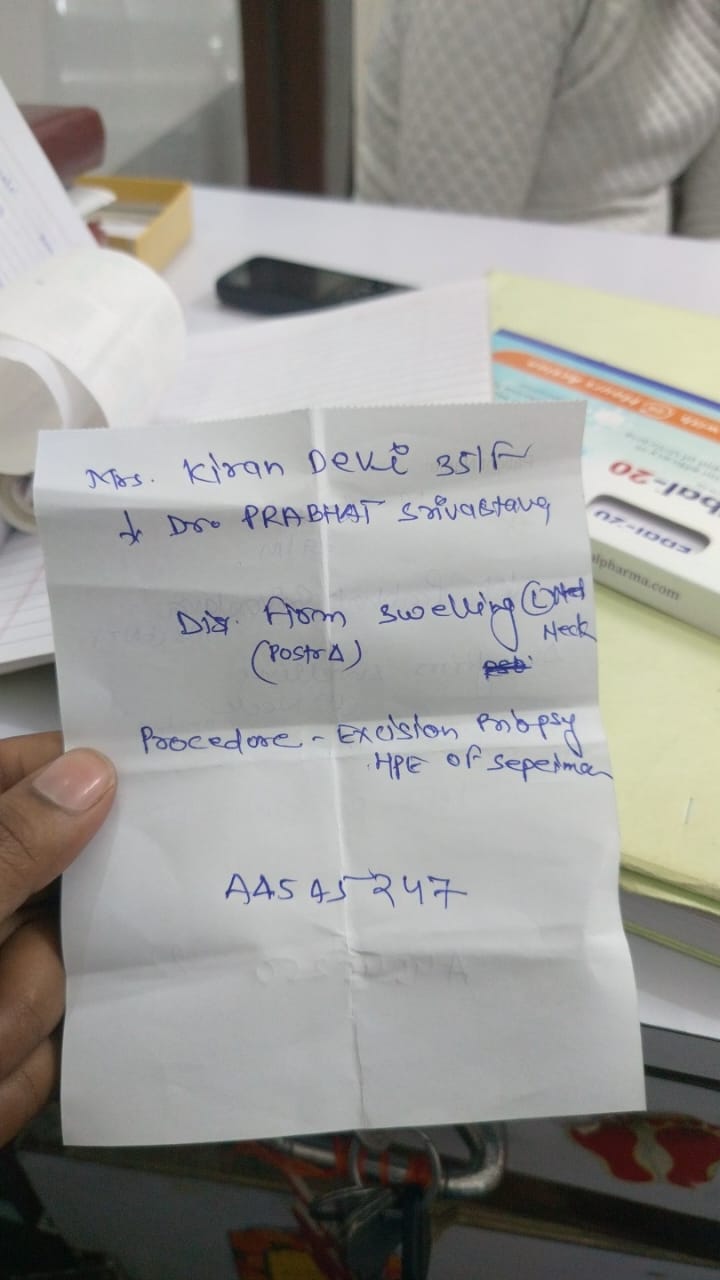 Mrs. Kiran Devi 35/F
Dr. PRABHAT Srivastava
Dia. Firm swelling (L)
Neck
(Postr Δ)
Procedore - Excision Bibpsy
HPE of Sepeiman
A45 45 247
bal-20
EBal-20
alpharma.com